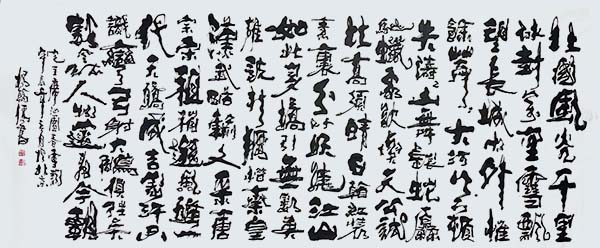 北國風光千里
冰封萬里雪飄
望長城內外惟
餘莽莽大河上下頓
失滔滔山舞銀蛇原
馳蠟象欲與天公試
比高須晴日看紅裝
素裹分外妖嬈江山
如此多嬌引無數英
雄競折腰惜秦皇
漢武略輸文采唐
宗宋祖稍遜風騷一
代天驕成吉思汗只
識彎弓射大雕俱往矣
數風流人物還看今朝
毛主席沁園春雪詞